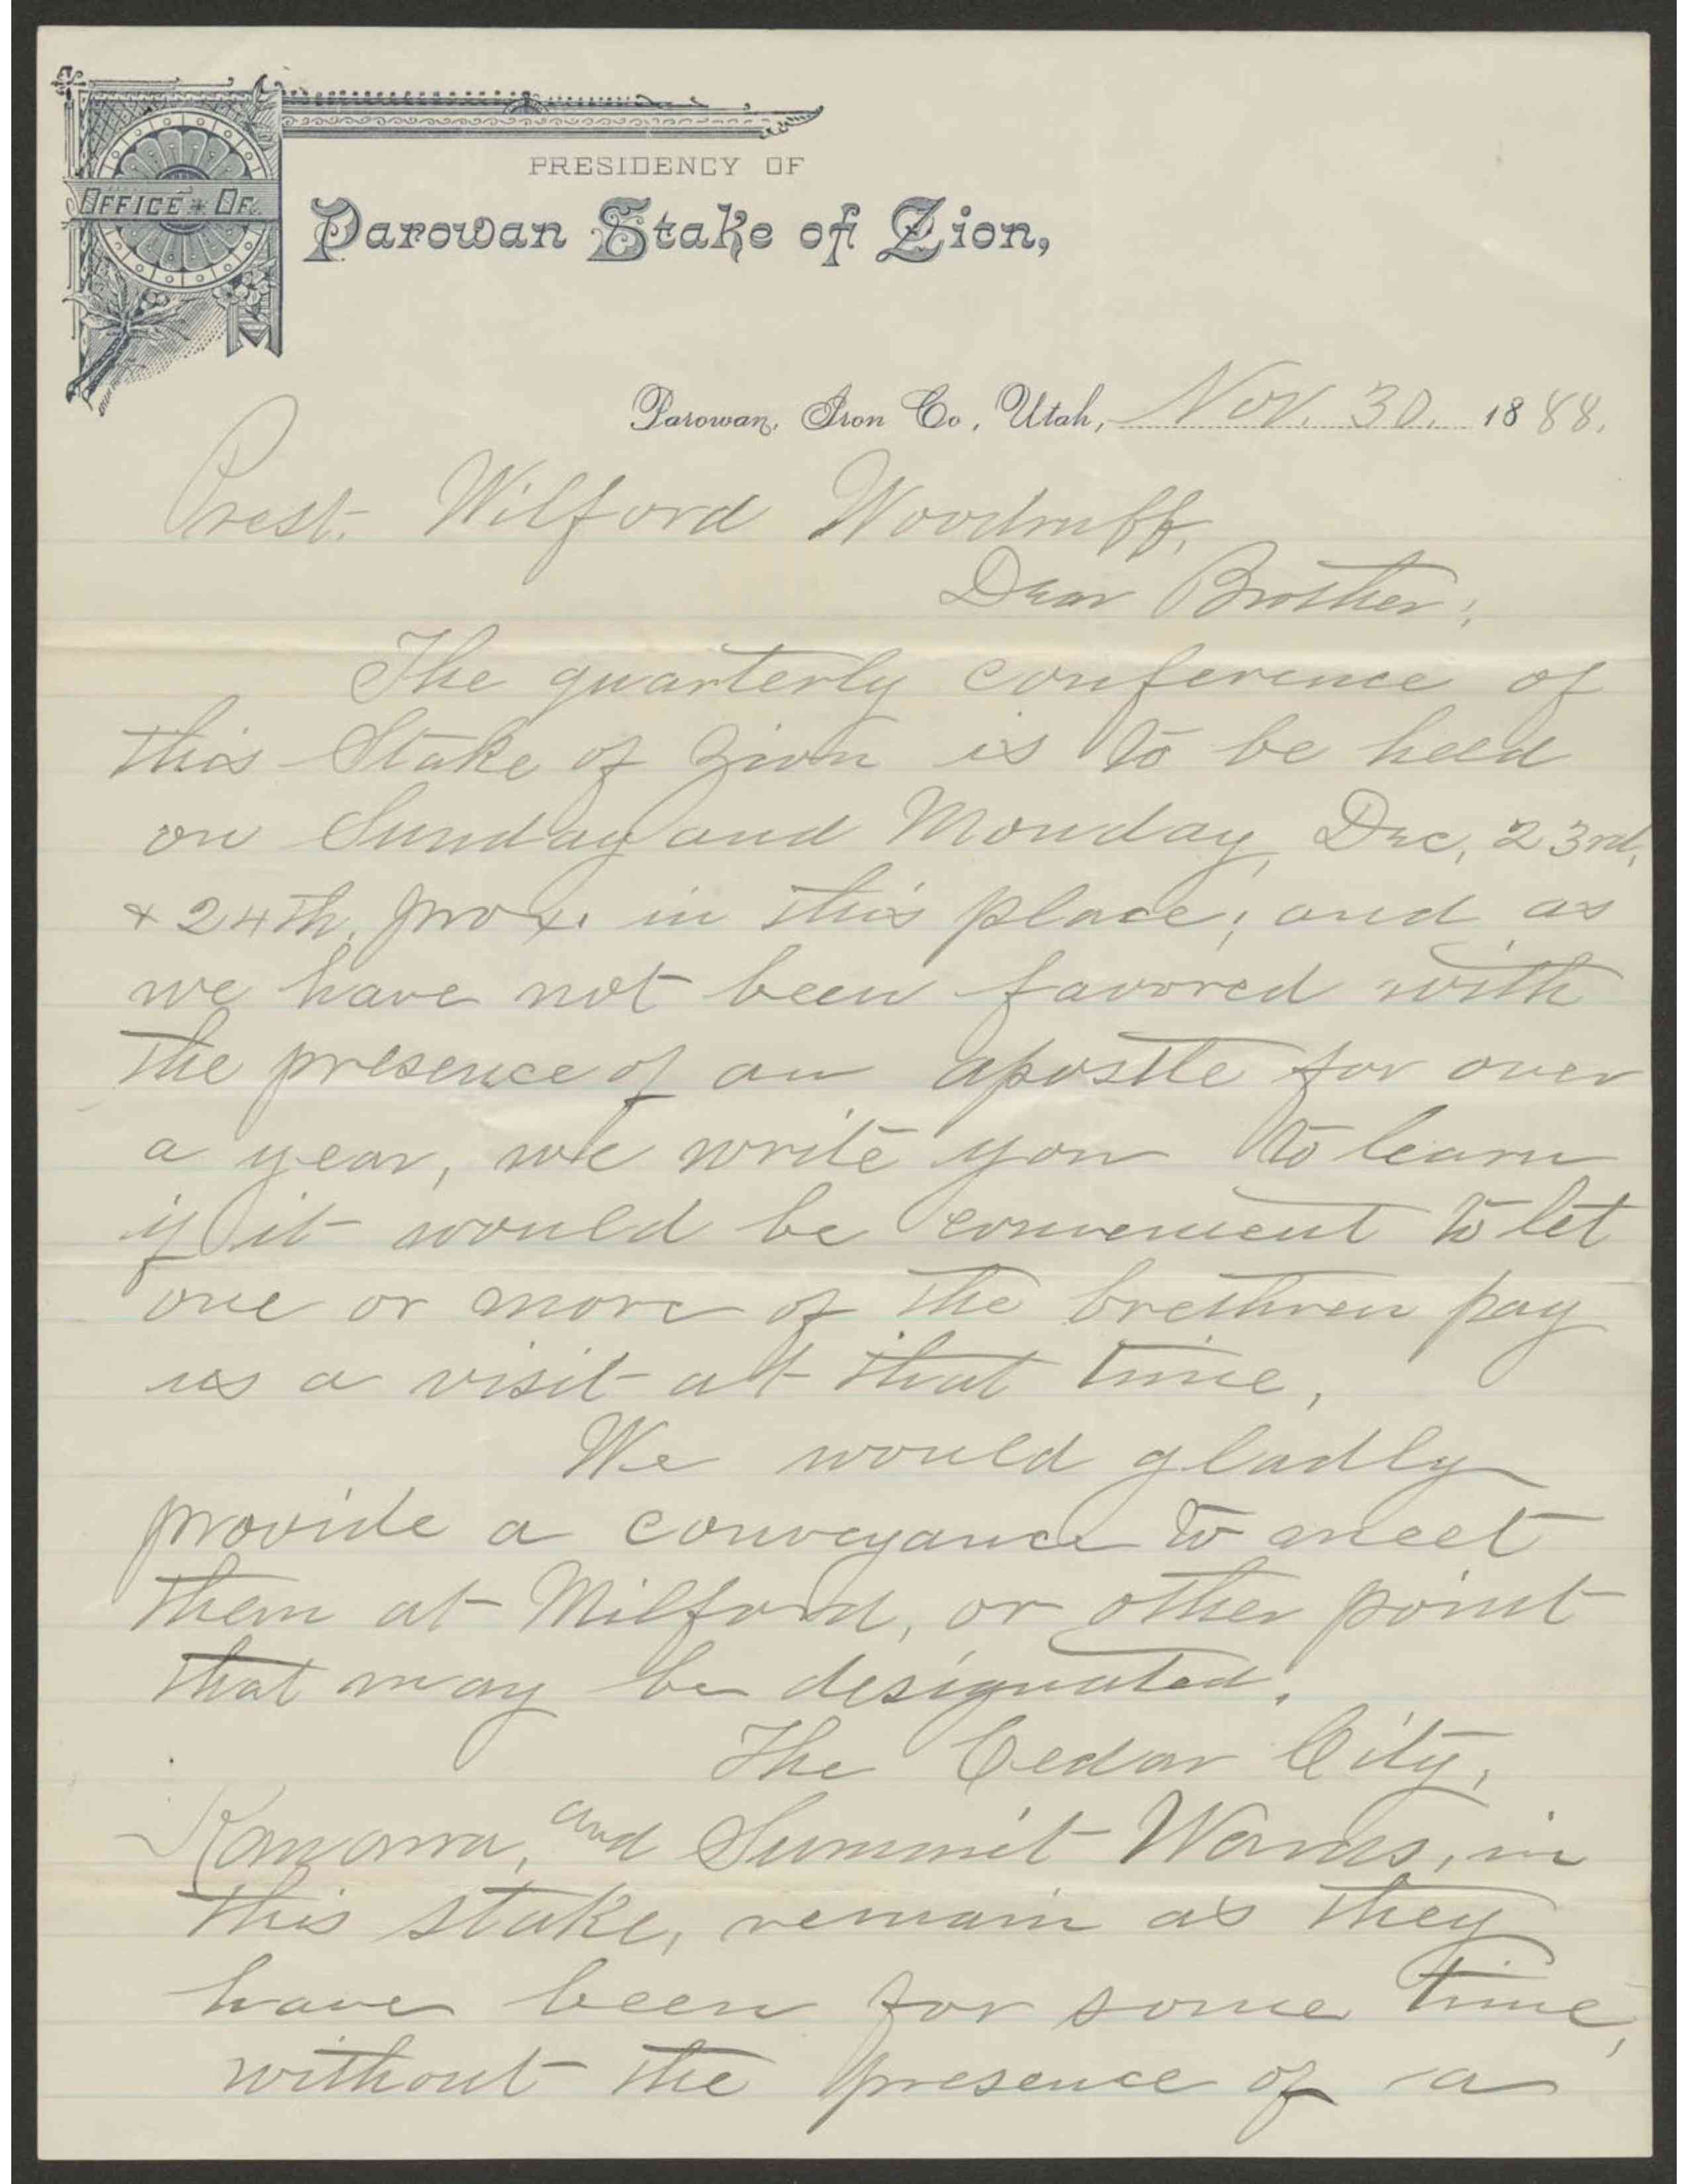 PRESIDENCY OF
OFFICE * OF
Parowan Stake of Zion,
Parowan, Iron Co., Utah, Nov. 30. 1888.
Prest. Wilford Woodruff,
Dear Brother;
The quarterly conference of
this Stake of Zion is to be held
on Sunday and Monday, Dec, 23rd,
& 24th, prox. in this place; and as
we have not been favored with
the presence of an apostle for over
a year, we write you to learn
if it would be convenient to let
one or more of the brethren pay
us a visit at that time,
We would gladly
provide a conveyance to meet
them at Milford, or other point
that may be designated.
The Cedar City,
Kanarra, and Summit Wards, in
this stake, remain as they
have been for some time,
without the presence of a